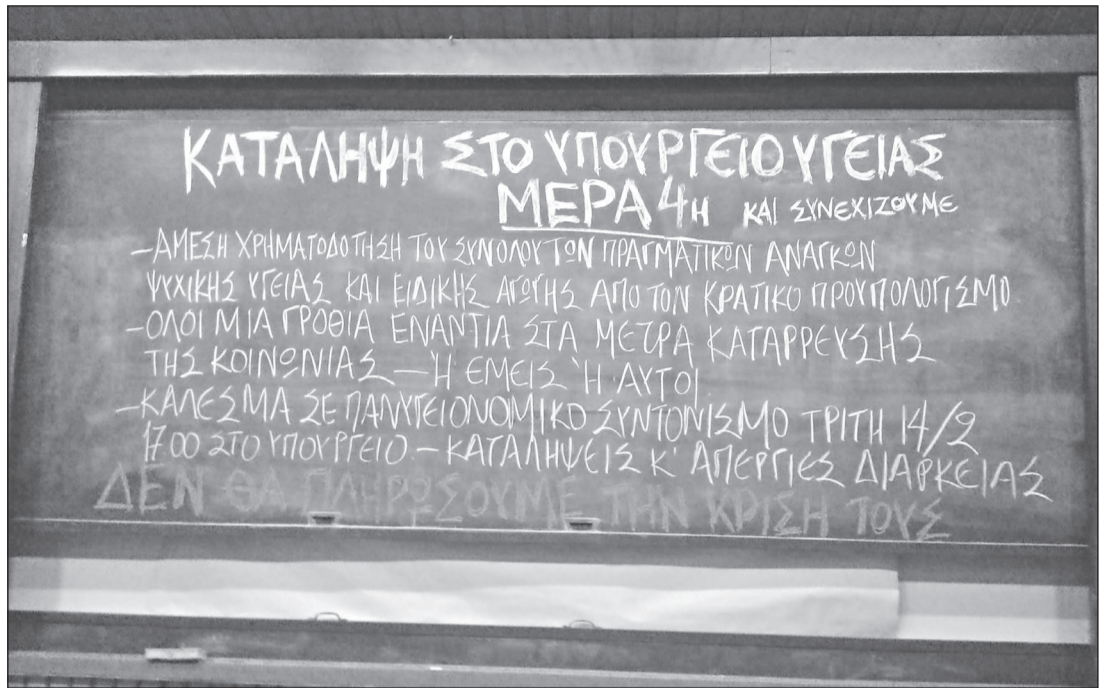 ΚΑΤΑΛΗΨΗ ΣΤΟ ΥΠΟΥΡΓΕΙΟ ΥΓΕΙΑΣ
ΜΕΡΑ 4η ΚΑΙ ΣΥΝΕΧΙΖΟΥΜΕ
–ΑΜΕΣΗ ΧΡΗΜΑΤΟΔΟΤΗΣΗ ΤΟΥ ΣΥΝΟΛΟΥ ΤΩΝ ΠΡΑΓΜΑΤΙΚΩΝ ΑΝΑΓΚΩΝ
ΨΥΧΙΚΗΣ ΥΓΕΙΑΣ ΚΑΙ ΕΙΔΙΚΗΣ ΑΓΩΓΗΣ ΑΠΟ ΤΟΝ ΚΡΑΤΙΚΟ ΠΡΟΥΠΟΛΟΓΙΣΜΟ
–ΟΛΟΙ ΜΙΑ ΓΡΟΘΙΑ ΕΝΑΝΤΙΑ ΣΤΑ ΜΕΤΡΑ ΚΑΤΑΡΡΕΥΣΗΣ
ΤΗΣ ΚΟΙΝΩΝΙΑΣ – Ή ΕΜΕΙΣ Ή ΑΥΤΟΙ
–ΚΑΛΕΣΜΑ ΣΕ ΠΑΝΥΓΕΙΟΝΟΜΙΚΟ ΣΥΝΤΟΝΙΣΜΟ ΤΡΙΤΗ 14/2
17 00 ΣΤΟ ΥΠΟΥΡΓΕΙΟ – ΚΑΤΑΛΗΨΕΙΣ Κ' ΑΠΕΡΓΙΕΣ ΔΙΑΡΚΕΙΑΣ
ΔΕΝ ΘΑ ΠΛΗΡΩΣΟΥΜΕ ΤΗΝ ΚΡΙΣΗ ΤΟΥΣ